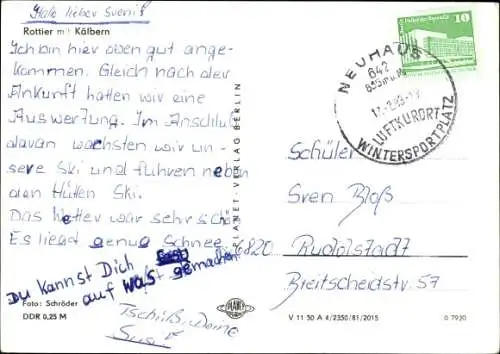 Hallo lieber Sveni!
Rottier mit Kälbern
Ich bin hier oben gut ange-
kommen. Gleich nach der
Ankunft hatten wir eine
Auswertung. Im Anschluß
davan wachsten wir un-
sere Ski und fuhren neben
den Hütten Ski.
Das Wetter war sehr schön
Es liegt genug Schnee.
Du kannst Dich
auf was gemachen!
Tschüß, Deine
Susi
Foto: Schröder
DDR 0,25 M
PLANET-VERLAG BERLIN
PLANET
V 11 50 A 4/2350/81/2015
G 7920
10
NEUHAUS
642
835m ü.M.
LUFTKURORT
WINTERSPORTPLATZ
Schüler
Sven Bloß
6820 Rudolstadt
Breitscheidstr. 57